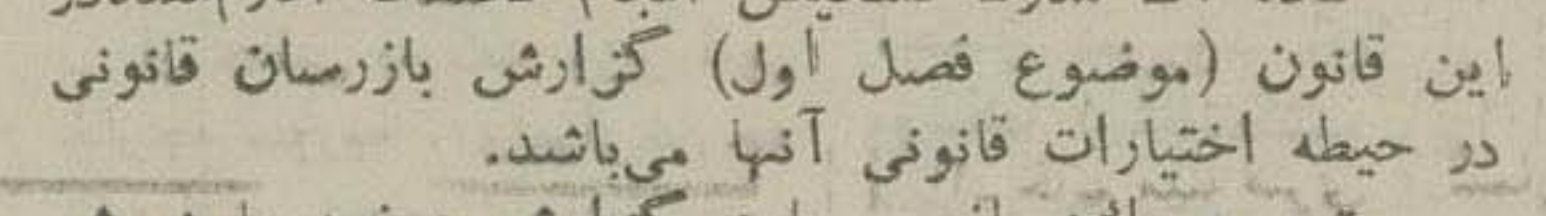 این قانون (موضوع فصل اول) گزارش بازرسان قانونی
در حیطه اختیارات قانونی آنها می‌باشد.